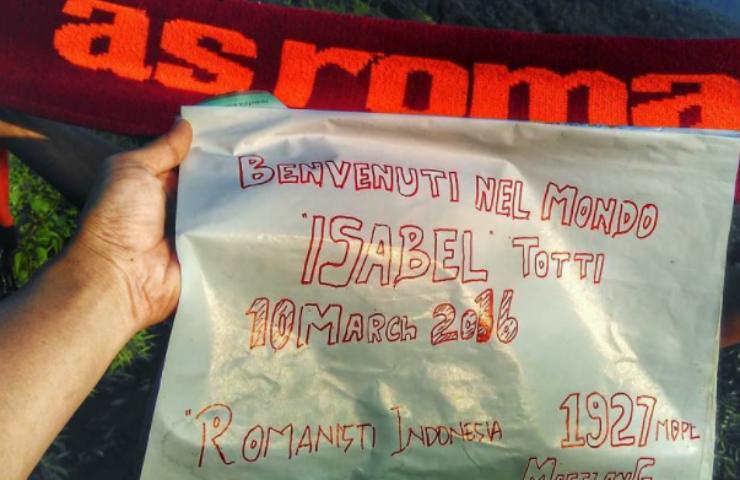 as roma
BENVENUTI NEL MONDO
"ISABEL" TOTTI
10 MARCH 2016
"ROMANISTI INDONESIA
1927 MDPL